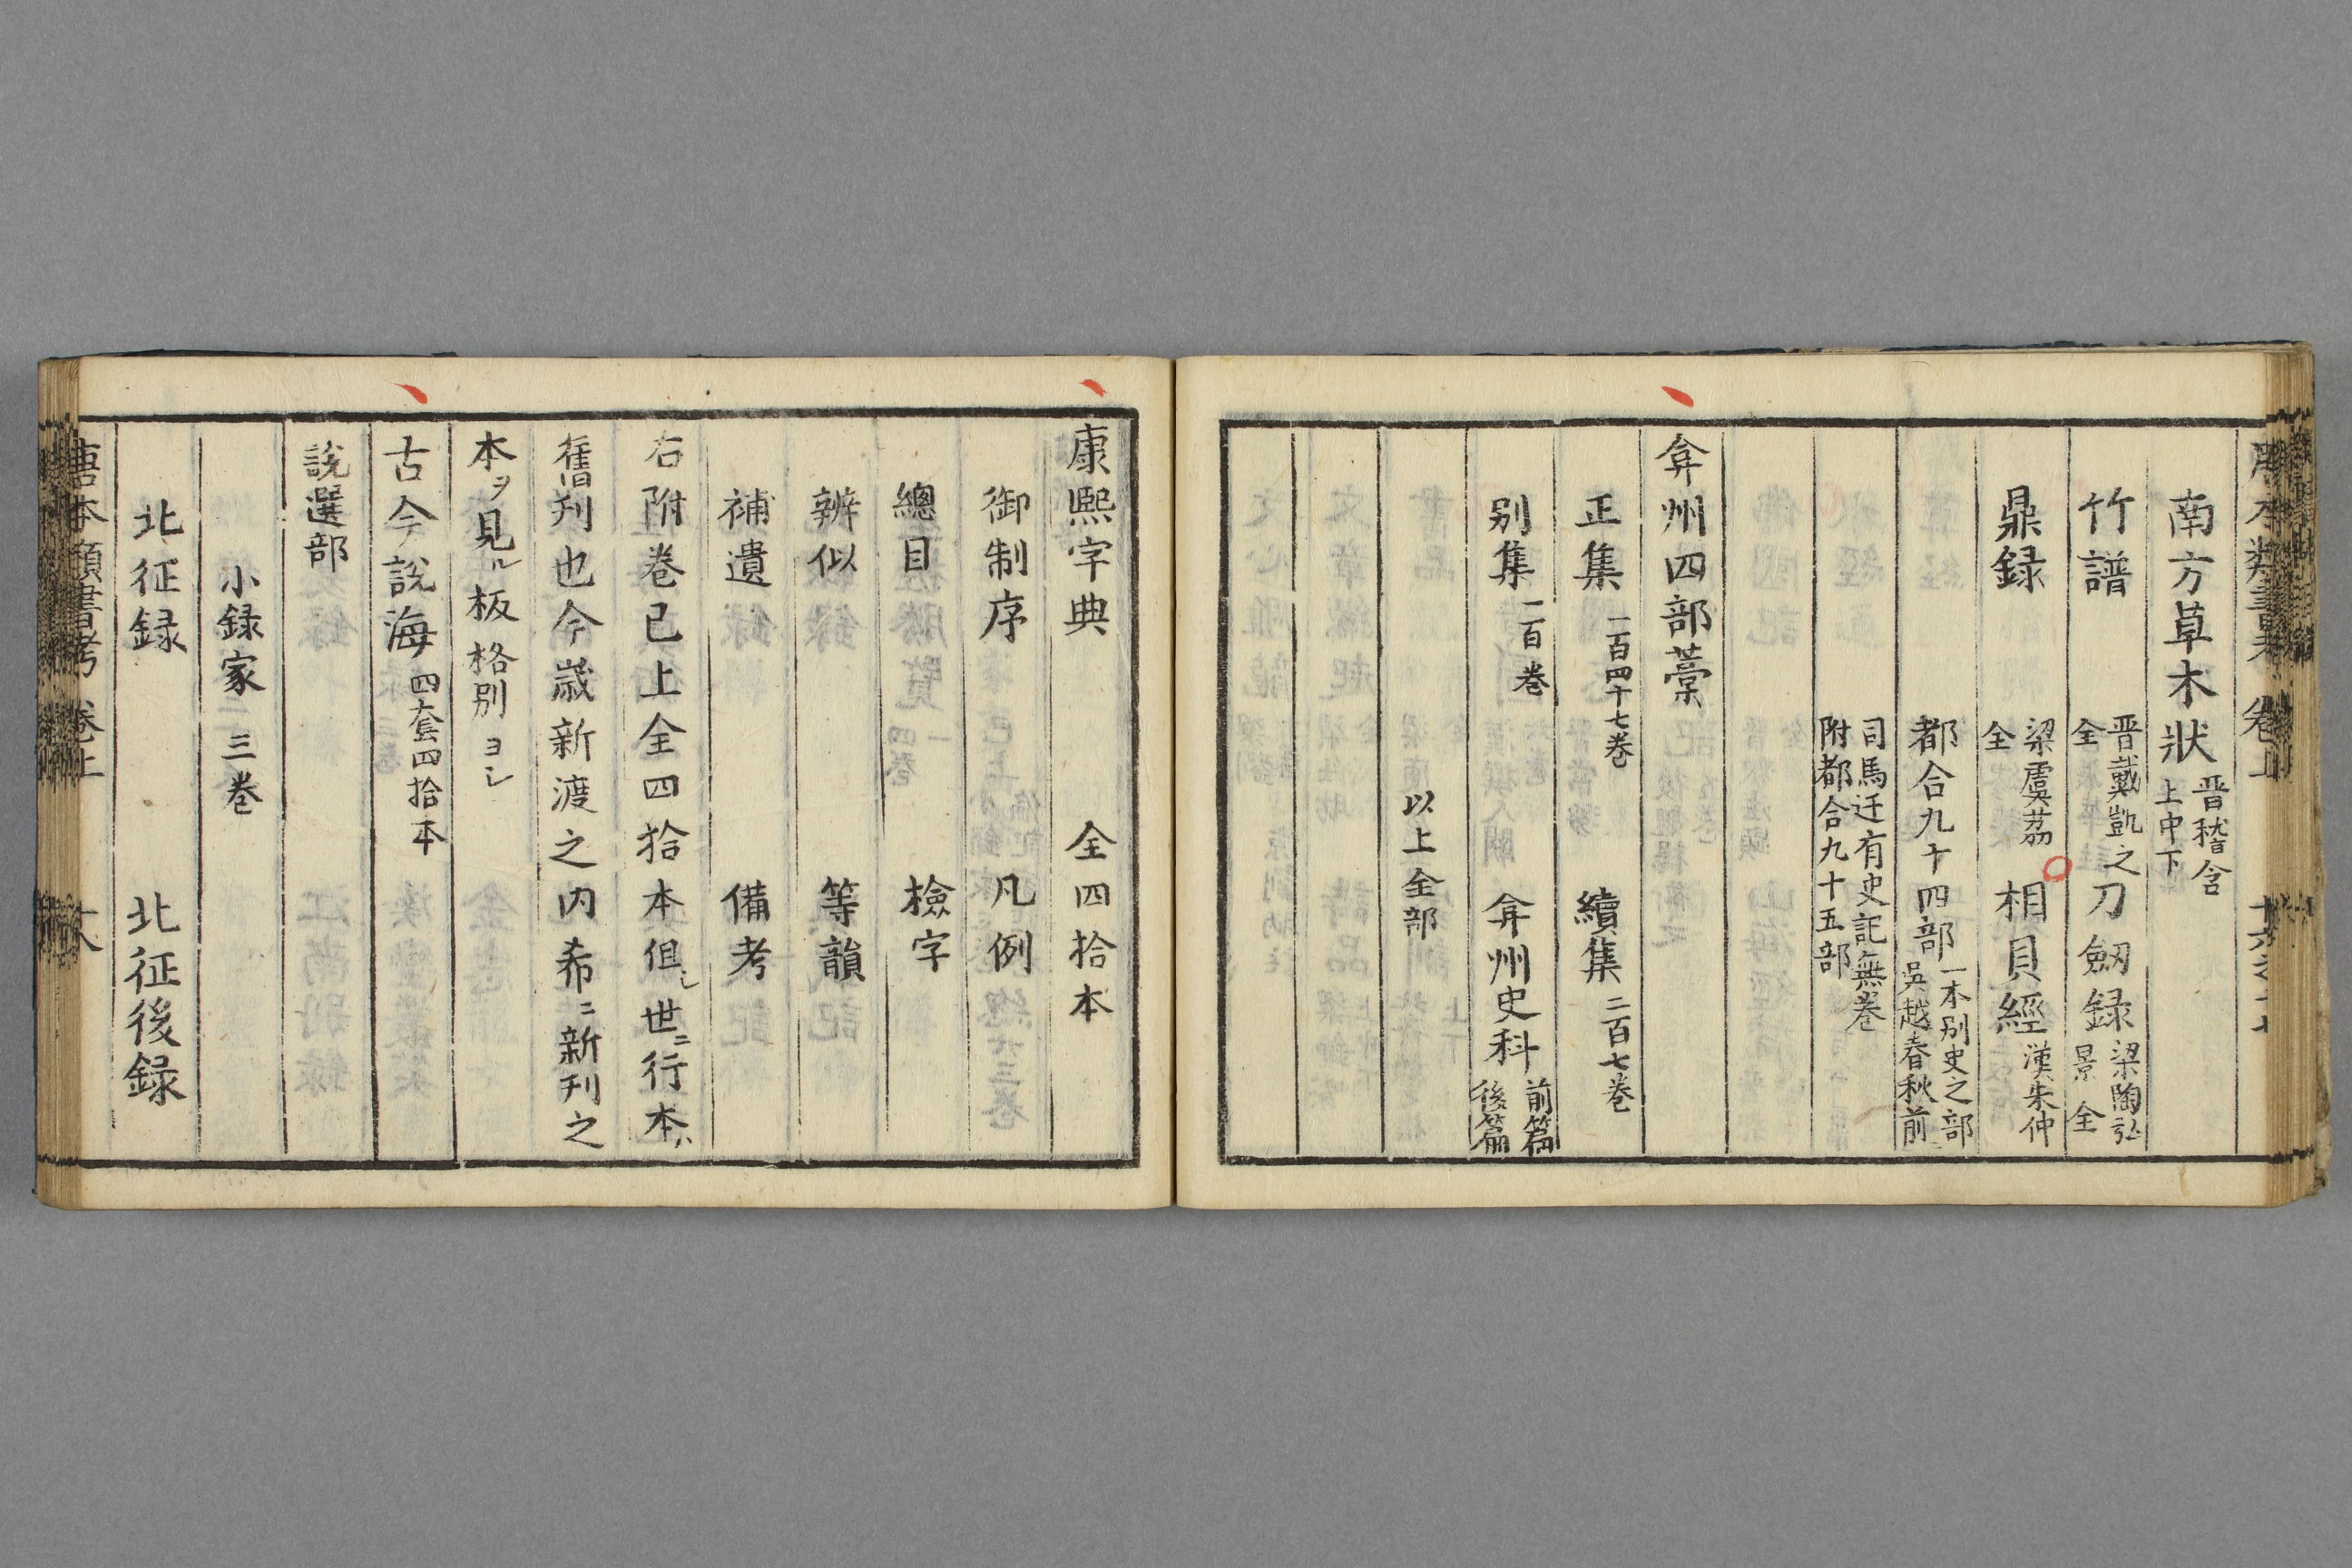 南方草木狀 晋嵇含 上中下
竹譜 晋戴凱之 全 刀劔録 梁陶弘景 全
鼎録 梁虞茘 全 相貝經 漢朱仲
都合九十四部 一本別史之部 吳越春秋前
司馬迁有史記無卷 附都合九十五部
弇州四部藁
正集 一百四十七卷 續集 二百七卷
别集 一百卷 弇州史料 前篇 後篇
以上全部
康熙字典 全四拾本
御制序 凡例
總目 檢字
辨似 等韻
補遺 備考
右附卷已上全四拾本但シ世ニ行本ハ
舊刋也今歲新渡之内希ニ新刊之
本ヲ見ル板格別ヨシ
古今説海 四套四拾本
説選部
小録家 三卷
北征録 北征後録
唐本類書考 卷上